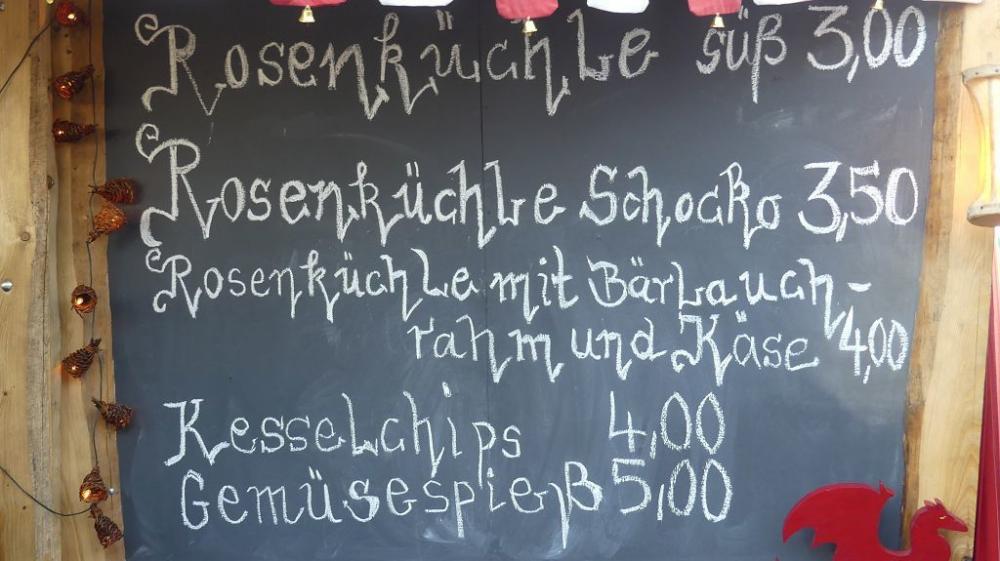 Rosenküchle süß 3,00
Rosenküchle Schocko 3,50
Rosenküchle mit Bärlauch-
rahm und Käse 4,00
Kesselchips 4,00
Gemüsespieß 5,00